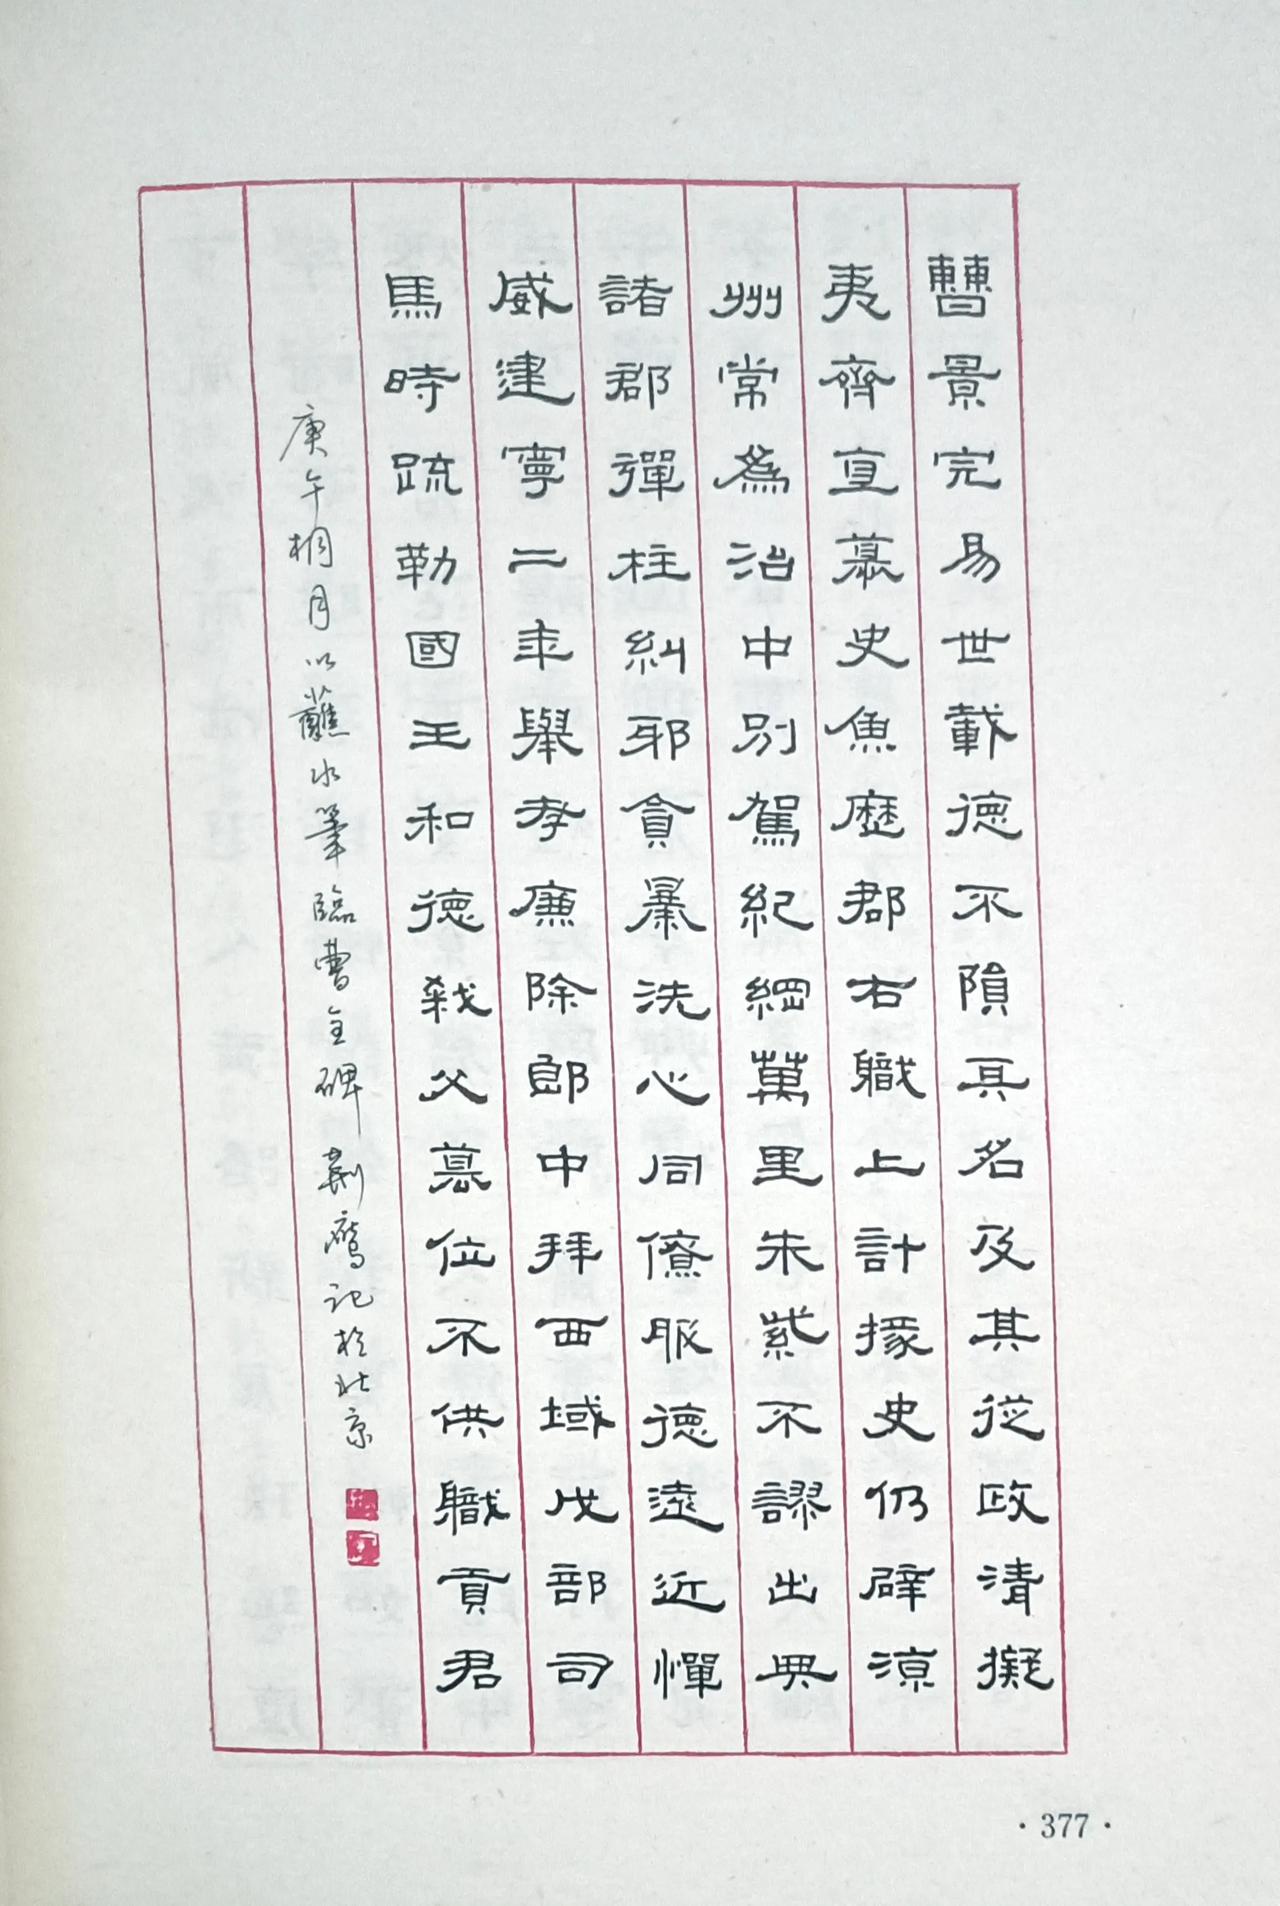 曹景完易世載德不隕其名及其從政清擬
夷齊直慕史魚歷郡右職上計掾史仍辟涼
州常為治中別駕紀綱萬里朱紫不謬出典
諸郡彈枉糾邪貪暴洗心同僚服德遠近憚
威建寧二年舉孝廉除郎中拜西域戊部司
馬時疏勒國王和德弒父篡位不供職貢君
庚午桐月以蘸水筆臨曹全碑 荊鷹記於北京
·377·